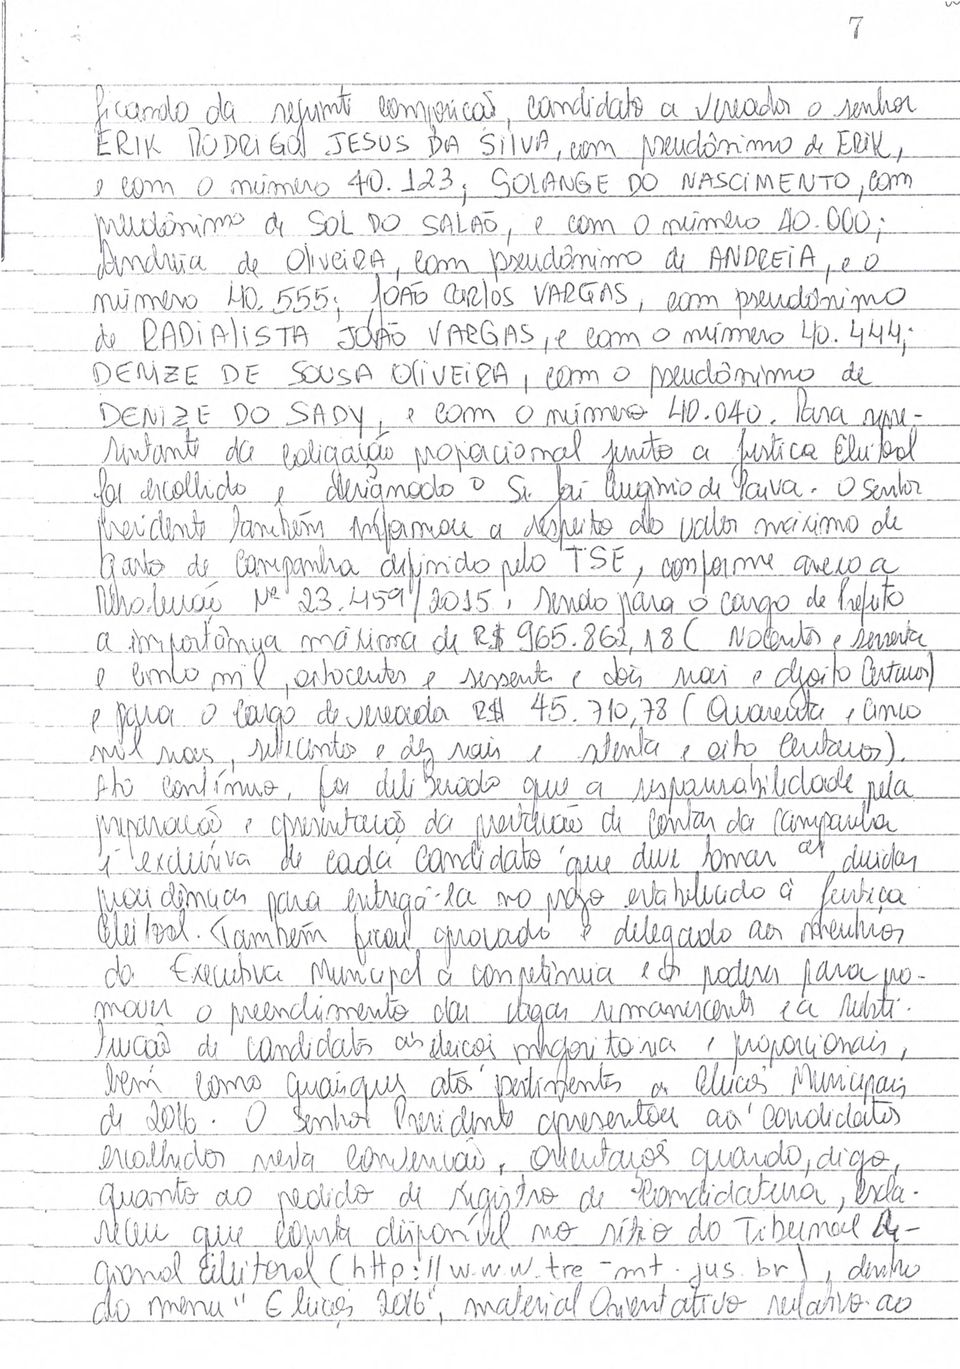 7
ficando da seguinte composição, candidato a vereador o senhor
ERIK RODRIGO JESUS DA SILVA, com pseudônimo de ERIK,
e com o número 40.123; SOLANGE DO NASCIMENTO, com
pseudônimo de SOL DO SALÃO, e com o número 40.000;
Andreia de OliveiRA, com pseudônimo de ANDREIA, e o
número 40.555; JOÃO CARlOS VARGAS, com pseudônimo
de RADIAlISTA JOÃO VARGAS, e com o número 40.444;
DENIZE DE SOUSA OliVEIRA, com o pseudônimo de
DENIZE DO SADY, e com o número 40.040. Para repre-
sentante da coligação proporcional junto a Justiça Eleitoral
foi escolhido e designado o Sr. Eugênio de Paiva. O Senhor
presidente também informou a respeito do valor máximo de
Gasto de Campanha definido pelo TSE, conforme anexo a
Resolução Nº 23.459/2015, sendo para o cargo de Prefeito
a importância máxima de R$ 965.862,18 (Novecentos e sessenta
e cinco mil, oitocentos e sessenta e dois reais e dezoito Centavos)
e para o cargo de vereador R$ 45.710,78 (Quarenta e cinco
mil reais, setecentos e dez reais e setenta e oito Centavos).
Ato contínuo, foi deliberado que a responsabilidade pela
preparação e apresentação da prestação de contas da Campanha
é exclusiva de cada candidato que deve tomar as devidas
providências para entregá-la no prazo estabelecido à Justiça
Eleitoral. Também ficou aprovado e delegado aos membros
da Executiva Municipal a competência e os poderes para pro-
mover o preenchimento das vagas remanescentes e a substi-
tuição de candidatos às eleições majoritária e proporcionais,
bem como quaisquer atos pertinentes as Eleições Municipais
de 2016. O Senhor Presidente apresentou aos candidatos
escolhidos nesta convenção, orientações quando, digo,
quanto ao pedido de registro de candidatura, escla-
receu que consta disponível no sítio do Tribunal Re-
gional Eleitoral (http://www.tre-mt.jus.br), dentro
do menu "Eleições 2016", material Orientativo relativo ao